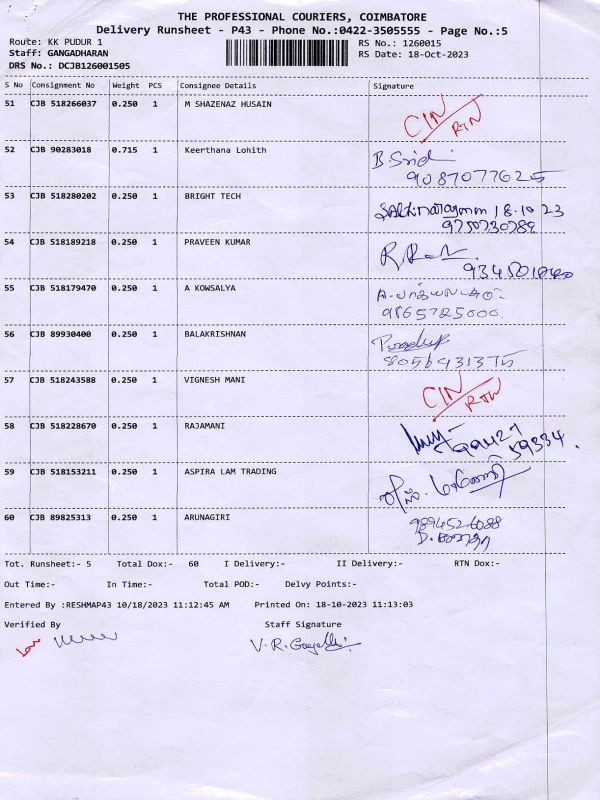 THE PROFESSIONAL COURIERS, COIMBATORE
Delivery Runsheet - P43 - Phone No.:0422-3505555 - Page No.:5
Route: KK PUDUR 1
RS No.: 1260015
Staff: GANGADHARAN
RS Date: 18-Oct-2023
DRS No.: DCJB126001505
S No Consignment No Weight PCS Consignee Details Signature
51 CJB 518266037 0.250 1 M SHAZENAZ HUSAIN CIN
RTN
52 CJB 90283018 0.715 1 Keerthana Lohith
9087077625
53 CJB 518280202 0.250 1 BRIGHT TECH 18.10 23
9750730789
54 CJB 518189218 0.250 1 PRAVEEN KUMAR
55 CJB 518179470 0.250 1 A KOWSALYA
9865725000.
56 CJB 89930400 0.250 1 BALAKRISHNAN
8056431375
57 CJB 518243588 0.250 1 VIGNESH MANI CIN
RTN
58 CJB 518228670 0.250 1 RAJAMANI
59334.
59 CJB 518153211 0.250 1 ASPIRA LAM TRADING
60 CJB 89825313 0.250 1 ARUNAGIRI 9894526088
Tot. Runsheet:- 5 Total Dox:- 60 I Delivery:- II Delivery:- RTN Dox:-
Out Time:- In Time:- Total POD:- Delvy Points:-
Entered By :RESHMAP43 10/18/2023 11:12:45 AM Printed On: 18-10-2023 11:13:03
Verified By Staff Signature